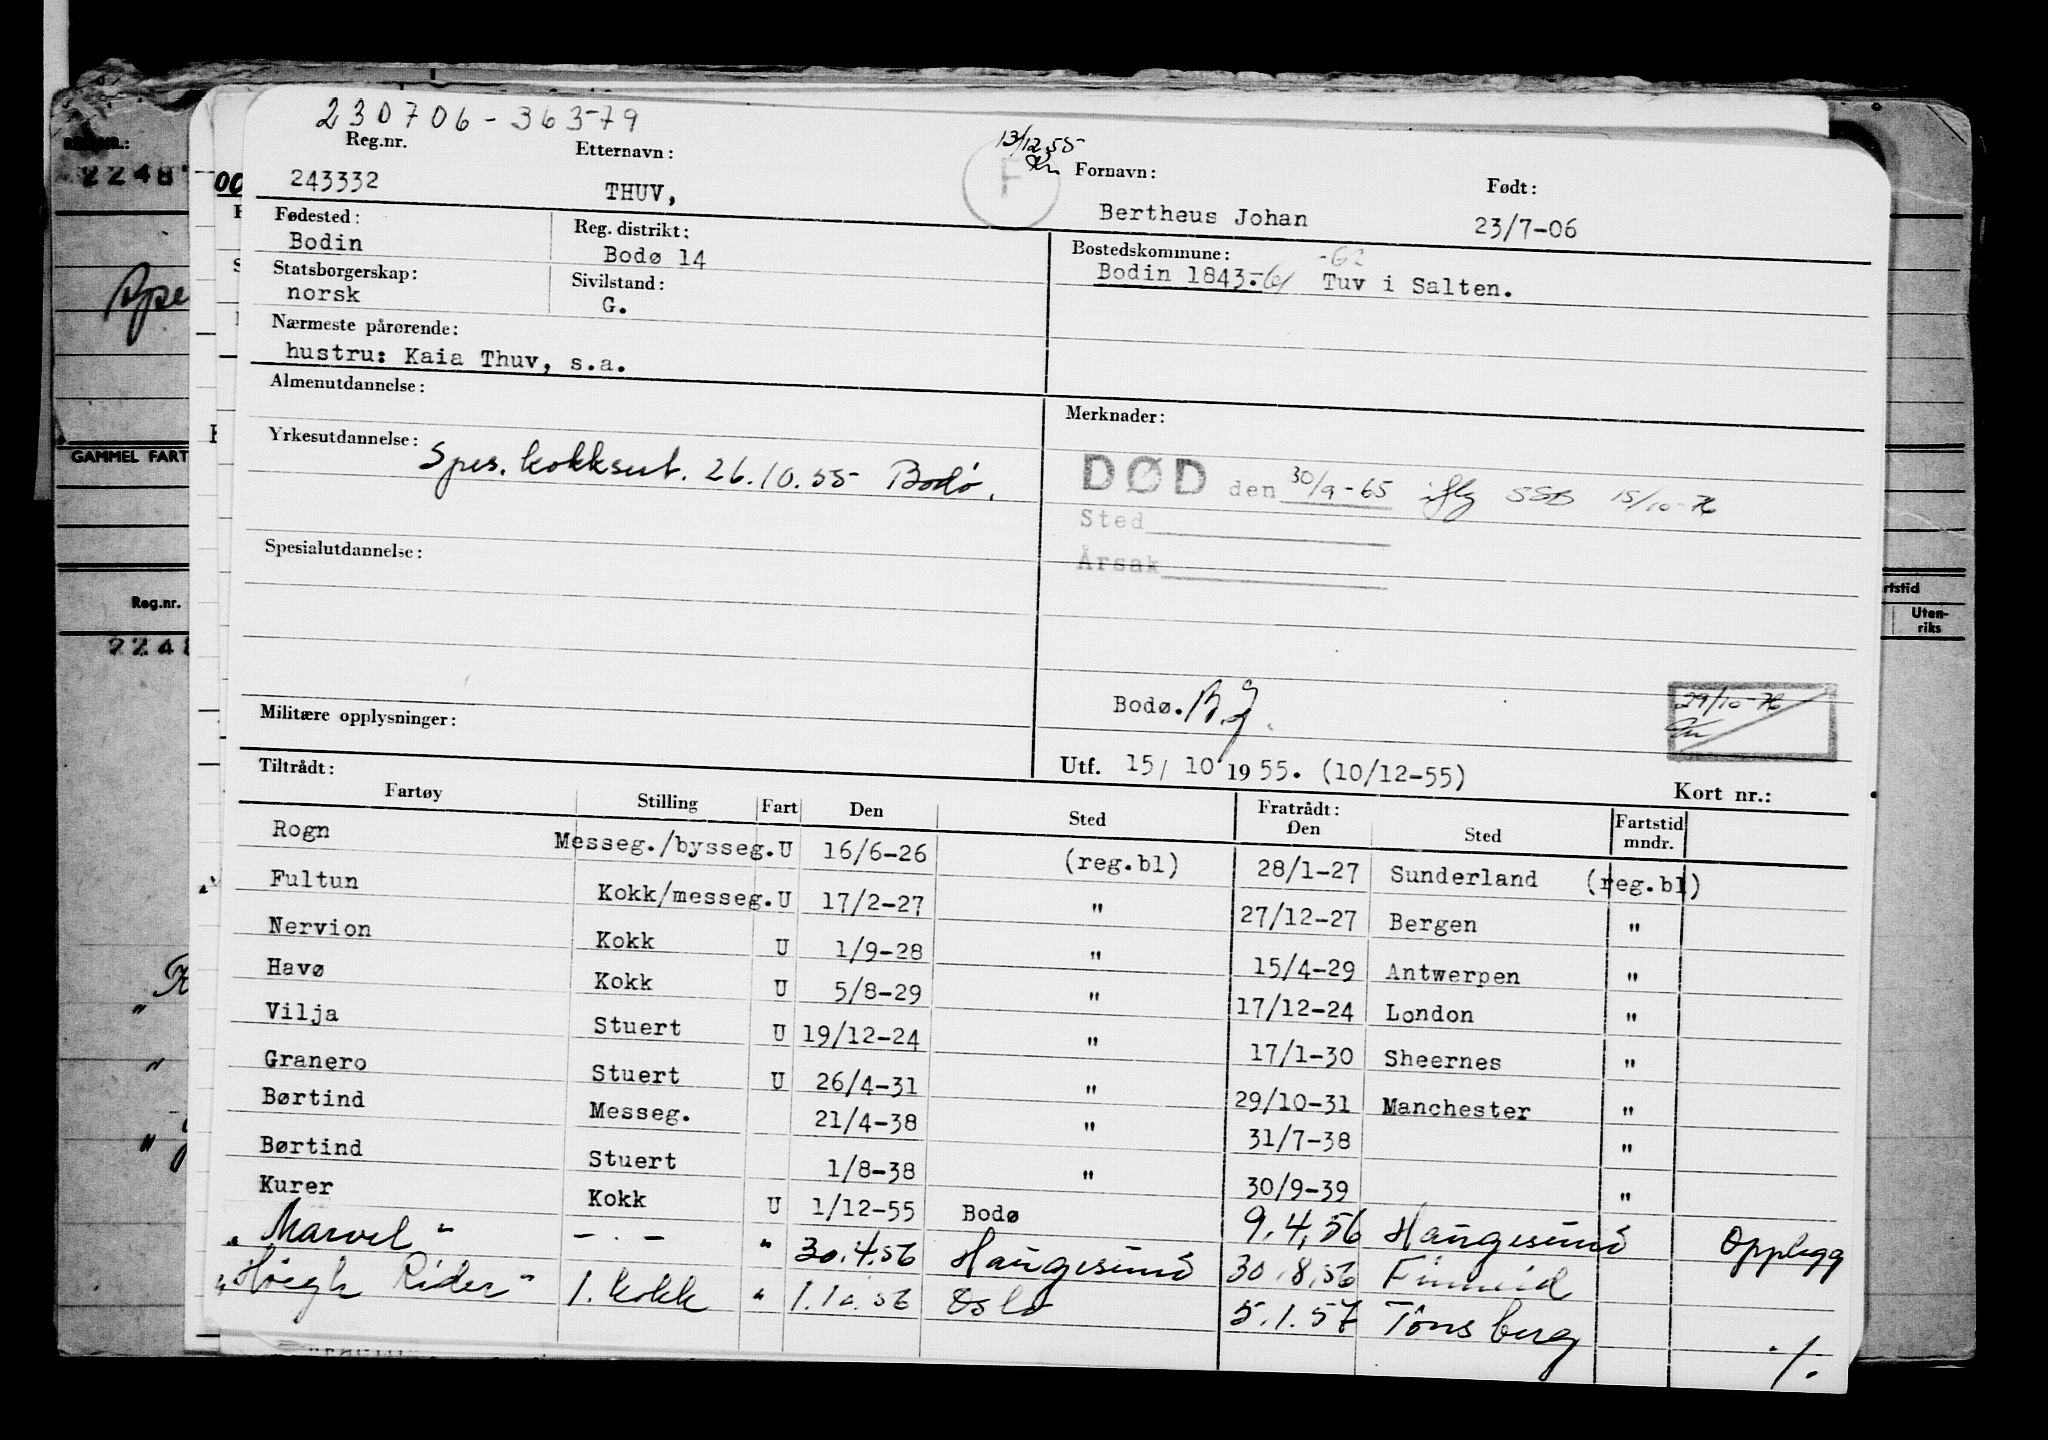 230706-36379
13/12 55
Reg.nr. Etternavn: F Fornavn: Født:
243332 THUV, Bertheus Johan 23/7-06
Fødested: Reg. distrikt: Bostedskommune: -62
Bodin Bodø 14 Bodin 1843.-61 Tuv i Salten.
Statsborgerskap: Sivilstand:
norsk G.
Nærmeste pårørende:
hustru: Kaia Thuv, s.a.
Almenutdannelse: Merknader:
Yrkesutdannelse: Spes. kokksert. 26.10.55 Bodø.
DØD den 30/9-65 iflg SSB 15/10-76
Sted
Årsak
Spesialutdannelse:
Militære opplysninger:
Bodø. B.J. 29/10-76
Utf. 15/ 10 1955. (10/12-55)
Kort nr.:
Tiltrådt: Fratrådt:
Fartøy Stilling Fart Den Sted Den Sted Fartstid mndr.
Rogn Messeg./bysseg. U 16/6-26 (reg.bl) 28/1-27 Sunderland (reg.bl)
Fultun Kokk/messeg. U 17/2-27 " 27/12-27 Bergen "
Nervion Kokk U 1/9-28 " 15/4-29 Antwerpen "
Havø Kokk U 5/8-29 " 17/12-24 London "
Vilja Stuert U 19/12-24 " 17/1-30 Sheernes "
Granero Stuert U 26/4-31 " 29/10-31 Manchester "
Børtind Messeg. 21/4-38 " 31/7-38 "
Børtind Stuert 1/8-38 " 30/9-39 "
Kurer Kokk U 1/12-55 Bodø 9.4.56 Haugesund Opplegg
"Marvel" - . - " 30.4.56 Haugesund 30.8.56 Finneid
"Höegh Rider" 1. kokk " 1.10.56 Oslo 5.1.57 Tönsberg
./.
REG.NR.:
2248
00
GAMMEL FART
Reg.nr.
2248
rtstid
Uten-
riks